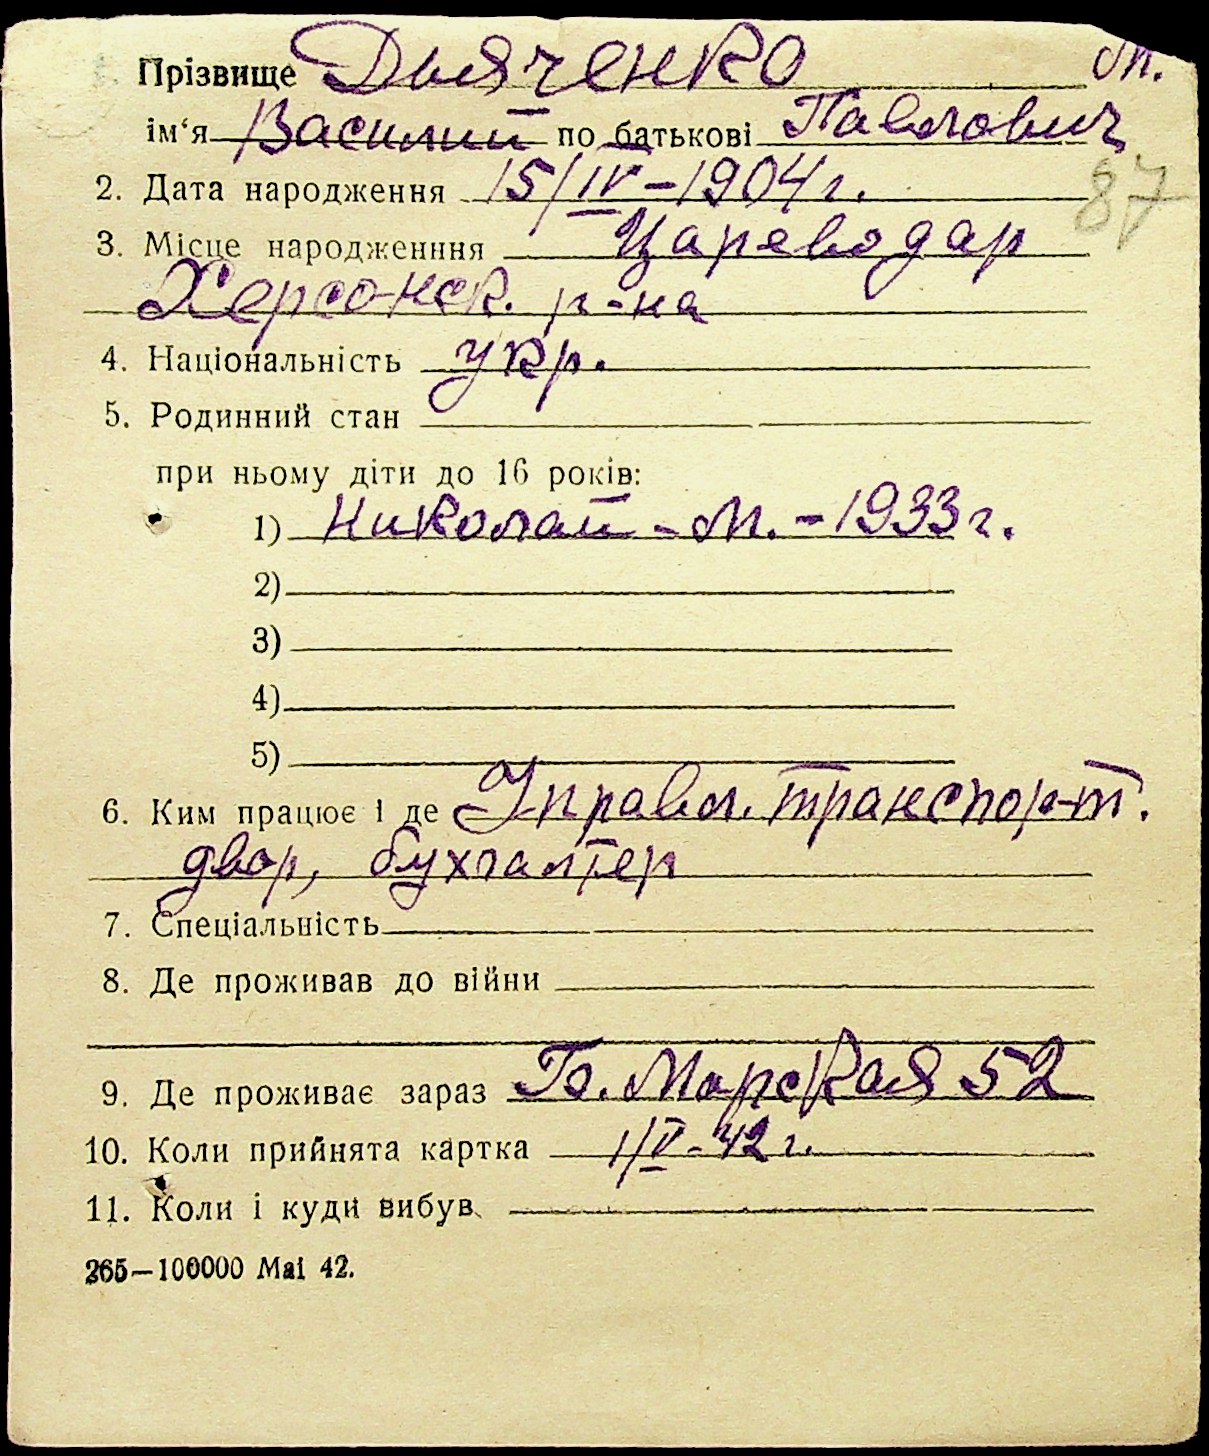 Прізвище Дьяченко м.
ім‘я Василий по батькові Павлович
2. Дата народження 15/IV – 1904 г.
87
3. Місце народженння Цареводар
Херсонск. р-на
4. Національність укр.
5. Родинний стан
при ньому діти до 16 років:
1) Николай – м. – 1933 г.
2)
3)
4)
5)
6. Ким працює і де Управл. транспорт.
двор, бухгалтер
7. Спеціальність
8. Де проживав до війни
9. Де проживає зараз Гл. Морская 52
10. Коли прийнята картка 1/V - 42 г.
11. Коли і куди вибув
265—100000 Mai 42.